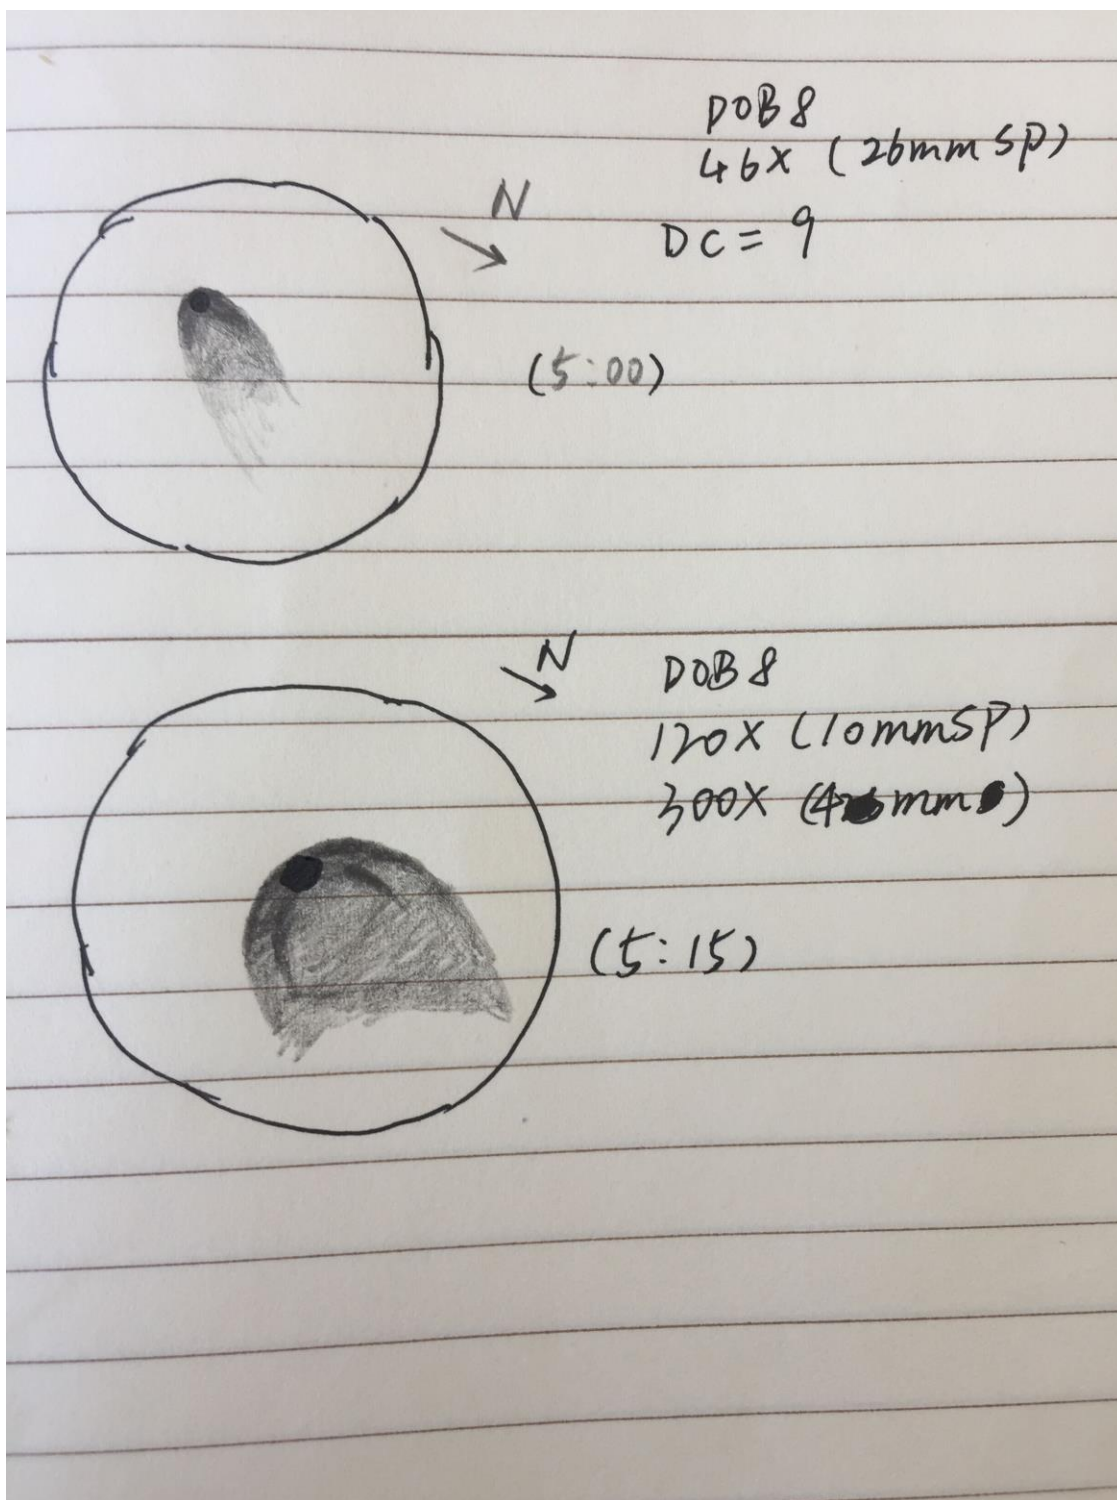 DOB 8
46X (26mm SP)
N
DC = 9
(5:00)
N
DOB 8
120X (10mm SP)
300X (4mm)
(5:15)